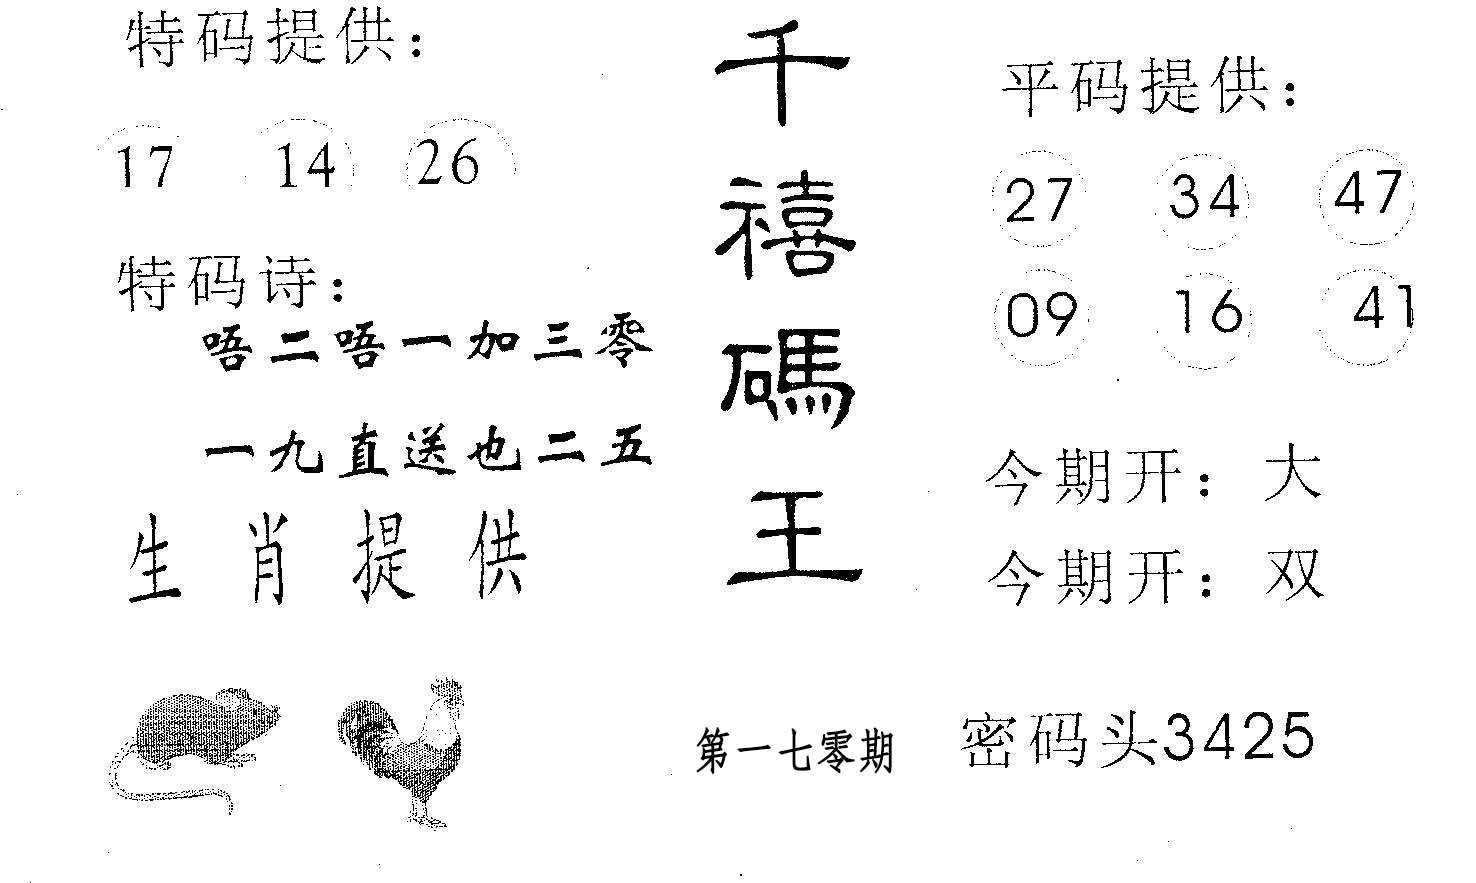 特码提供：
17 14 26
特码诗：
唔二唔一加三零
一九直送也二五
生肖提供
千禧碼王
第一七零期
平码提供：
27 34 47
09 16 41
今期开：大
今期开：双
密码头3425